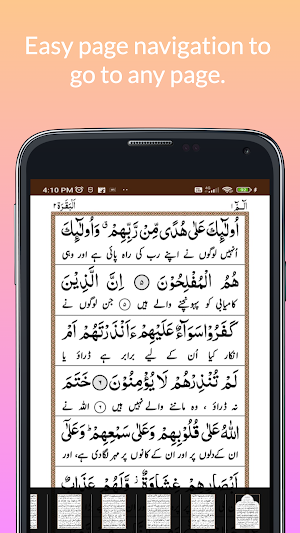 Easy page navigation to
go to any page.
4:10 PM
الٓمّٓ ۱
اَلْبَقَرَة ۲
اُولٰٓئِكَ عَلٰی هُدًی مِّنْ رَّبِّهِمْ ۗ وَاُولٰٓئِكَ
انہیں لوگوں نے اپنے رب کی راہ پائی ہے اور وہی
هُمُ الْمُفْلِحُوْنَ ۵ اِنَّ الَّذِيْنَ
کامیابی کو پہونچنے والے ہیں ۵ جن لوگوں نے
كَفَرُوْا سَوَآءٌ عَلَيْهِمْ ءَاَنْذَرْتَهُمْ اَمْ
انکار کیا اُن کے لیے برابر ہے ڈراؤ یا
لَمْ تُنْذِرْهُمْ لَا يُؤْمِنُوْنَ ۶ خَتَمَ
نہ ڈراؤ ، وہ ماننے والے نہیں ہیں ۶ اللہ نے
اللّٰهُ عَلٰی قُلُوْبِهِمْ وَعَلٰی سَمْعِهِمْ ؕ وَعَلٰٓی
ان کے دلوں پر اور ان کے کانوں پر مہر لگا دی ہے، اور
اَبْصَارِهِمْ غِشَاوَةٌ ؗ وَّلَهُمْ عَذَابٌ